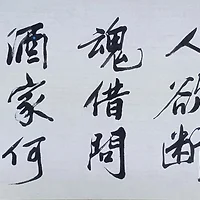 人欲断
魂借问
酒家何